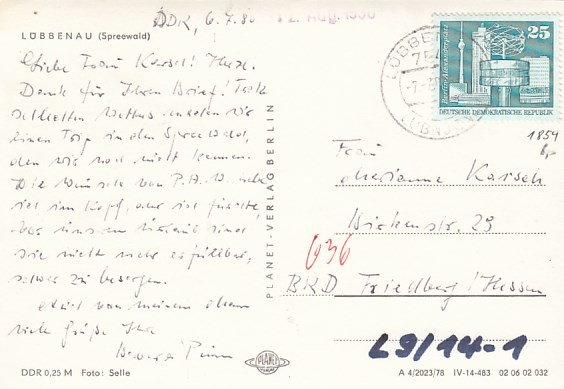 DDR, 6.7.80
12. Aug. 1980
LÜBBENAU (Spreewald)
Liebe Frau Karsch! Herzl.
Dank für Ihren Brief! Trotz
schlechten Wetters machten wir
einen Trip in den Spreewald,
den wir noch nicht kennen.
Die Wünsche von P.
im Kopf, aber ich fürchte,
sie nicht mehr erfüllbar,
etwas zu besorgen.
Auch von meinem Mann
viele Grüße Ihre
PLANET-VERLAG BERLIN
25
Berlin-Alexanderplatz
DEUTSCHE DEMOKRATISCHE REPUBLIK
LÜBBENAU
1854
6,-
Frau
Marianne Karsch
Wickenstr. 29
636
BRD Friedberg/Hessen
L9/14-1
DDR 0,25 M Foto: Selle
PLANET
A 4/2023/78 IV-14-483 02 06 02 032